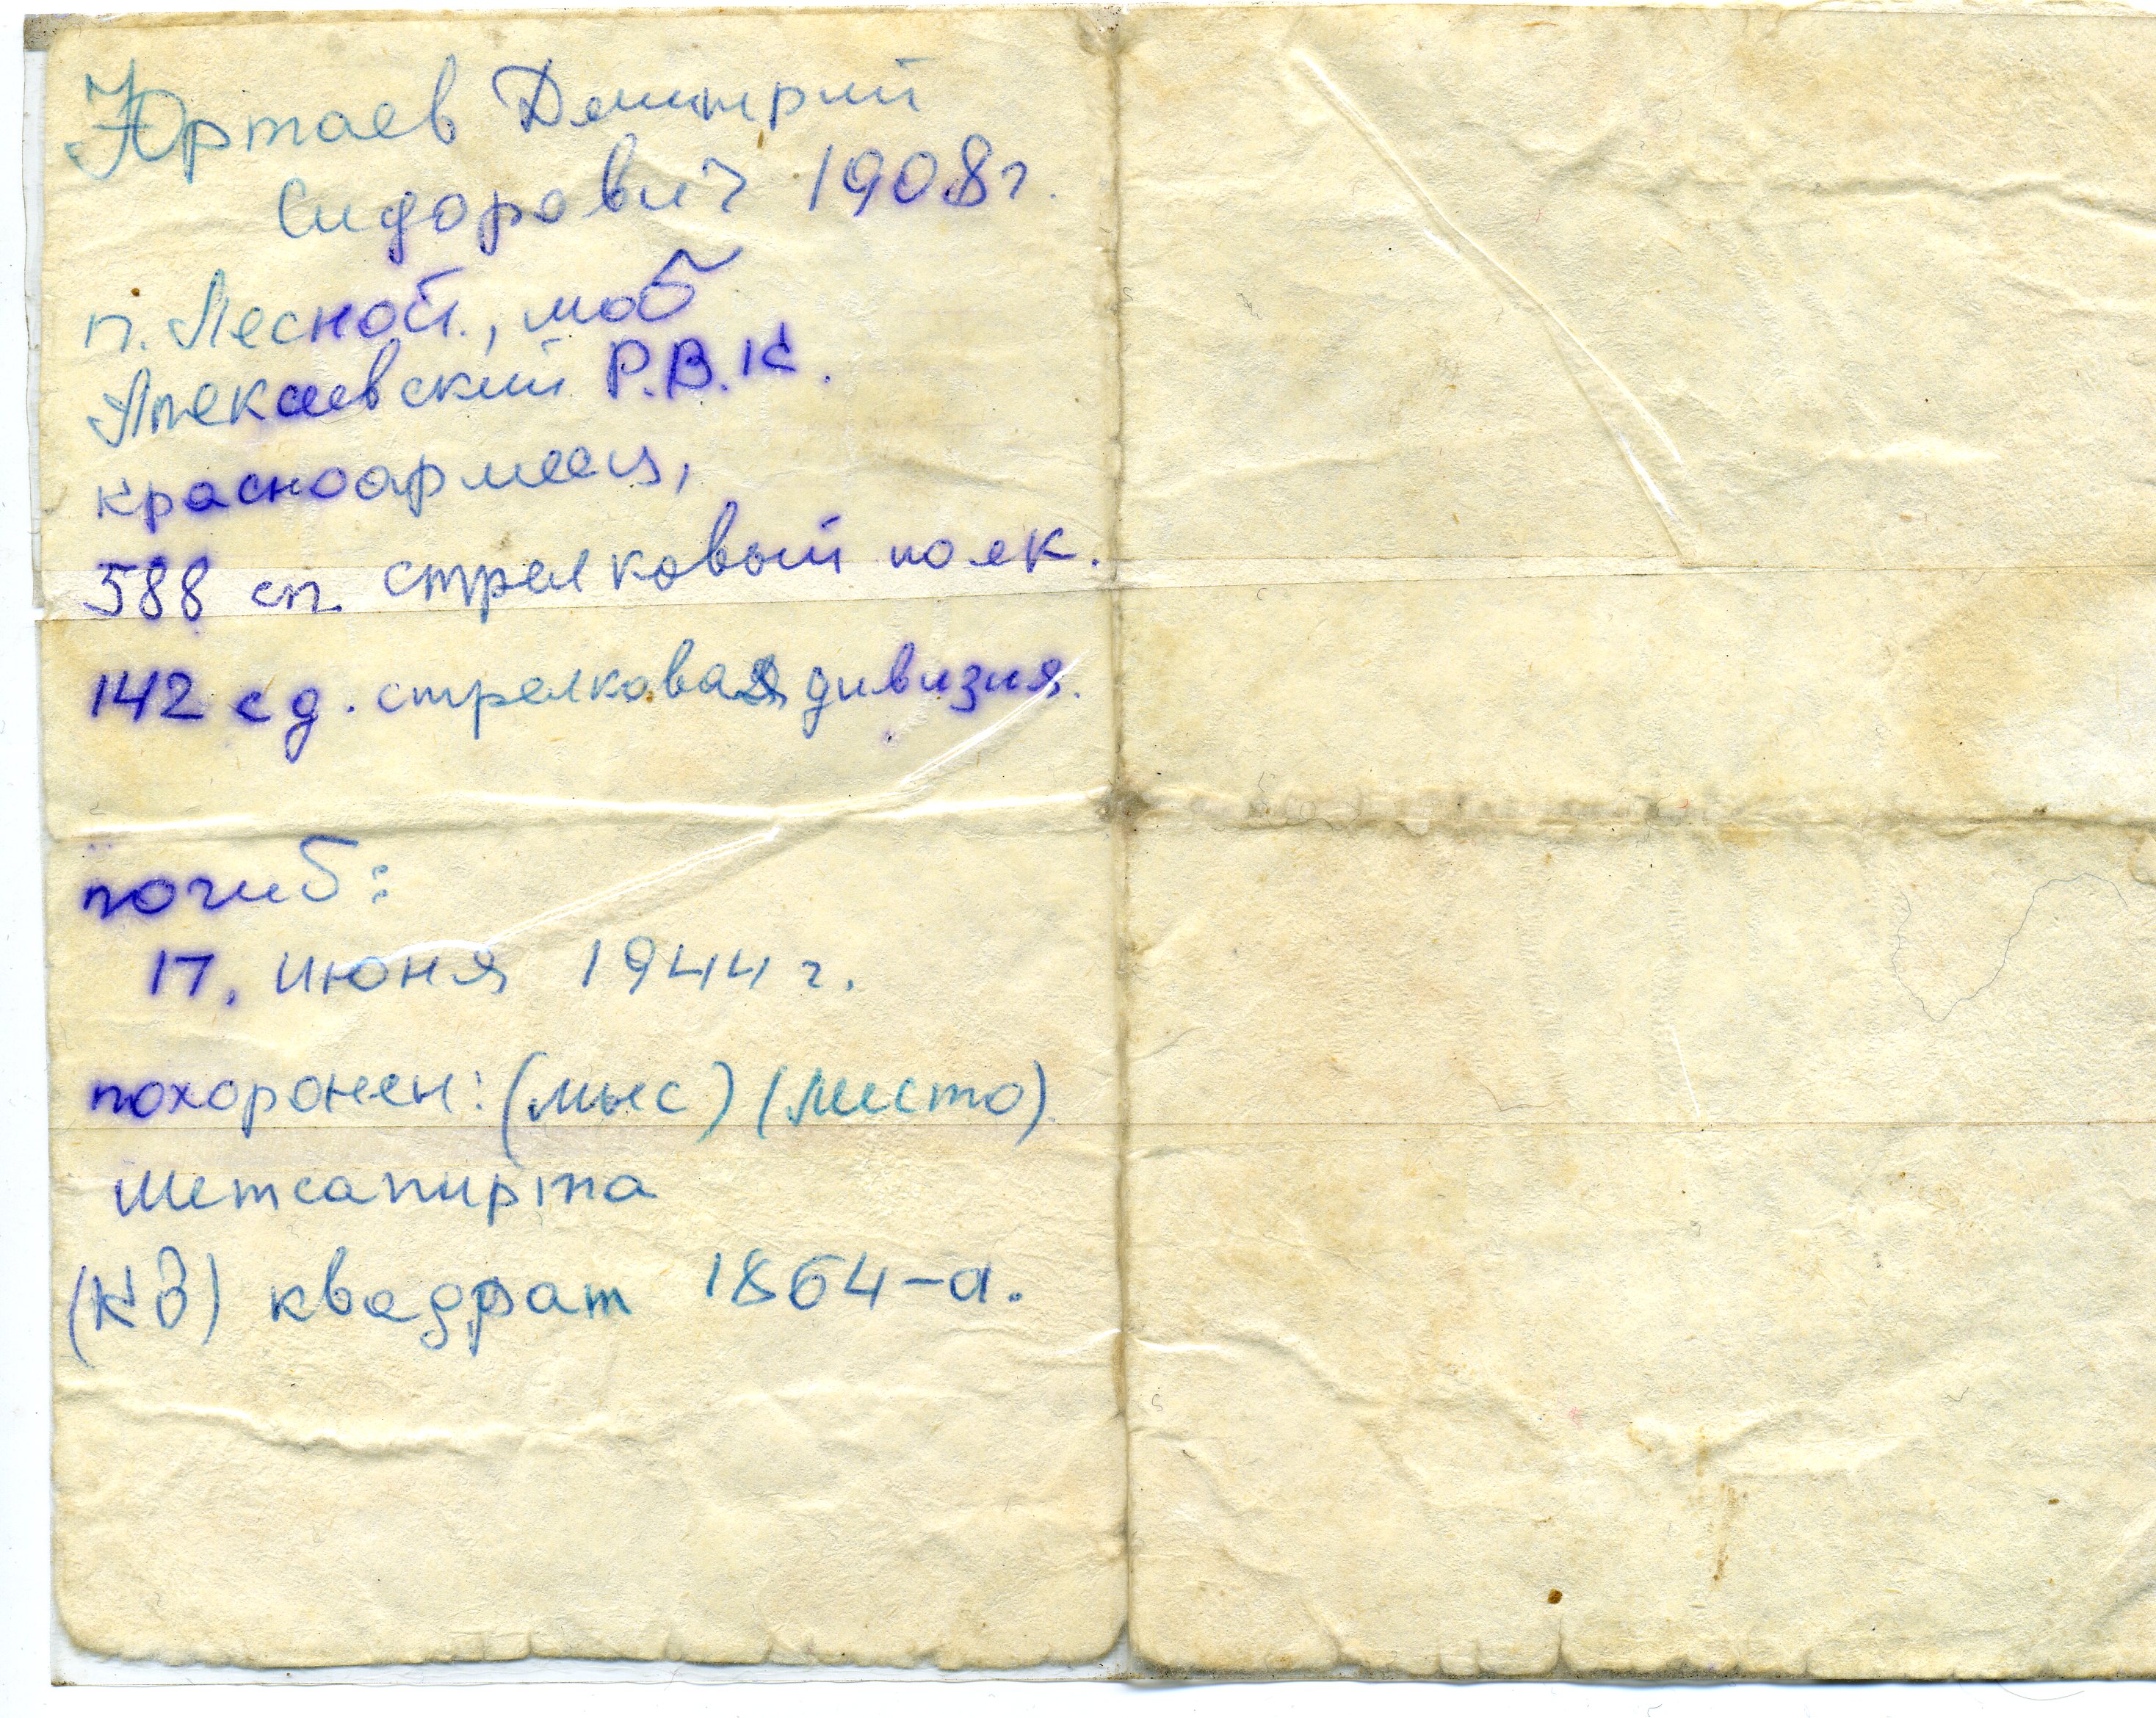 Юртаев Дмитрий
Сидорович 1908г.
п. Лесной, моб
Р.В.К.
красноармеец,
588 сп. стрелковый полк.
142 сд. стрелковая дивизия.
погиб:
17. июня 1944 г.
похоронен: (мыс) (место)
Метсапирта
(КВ) квадрат 1864-а.